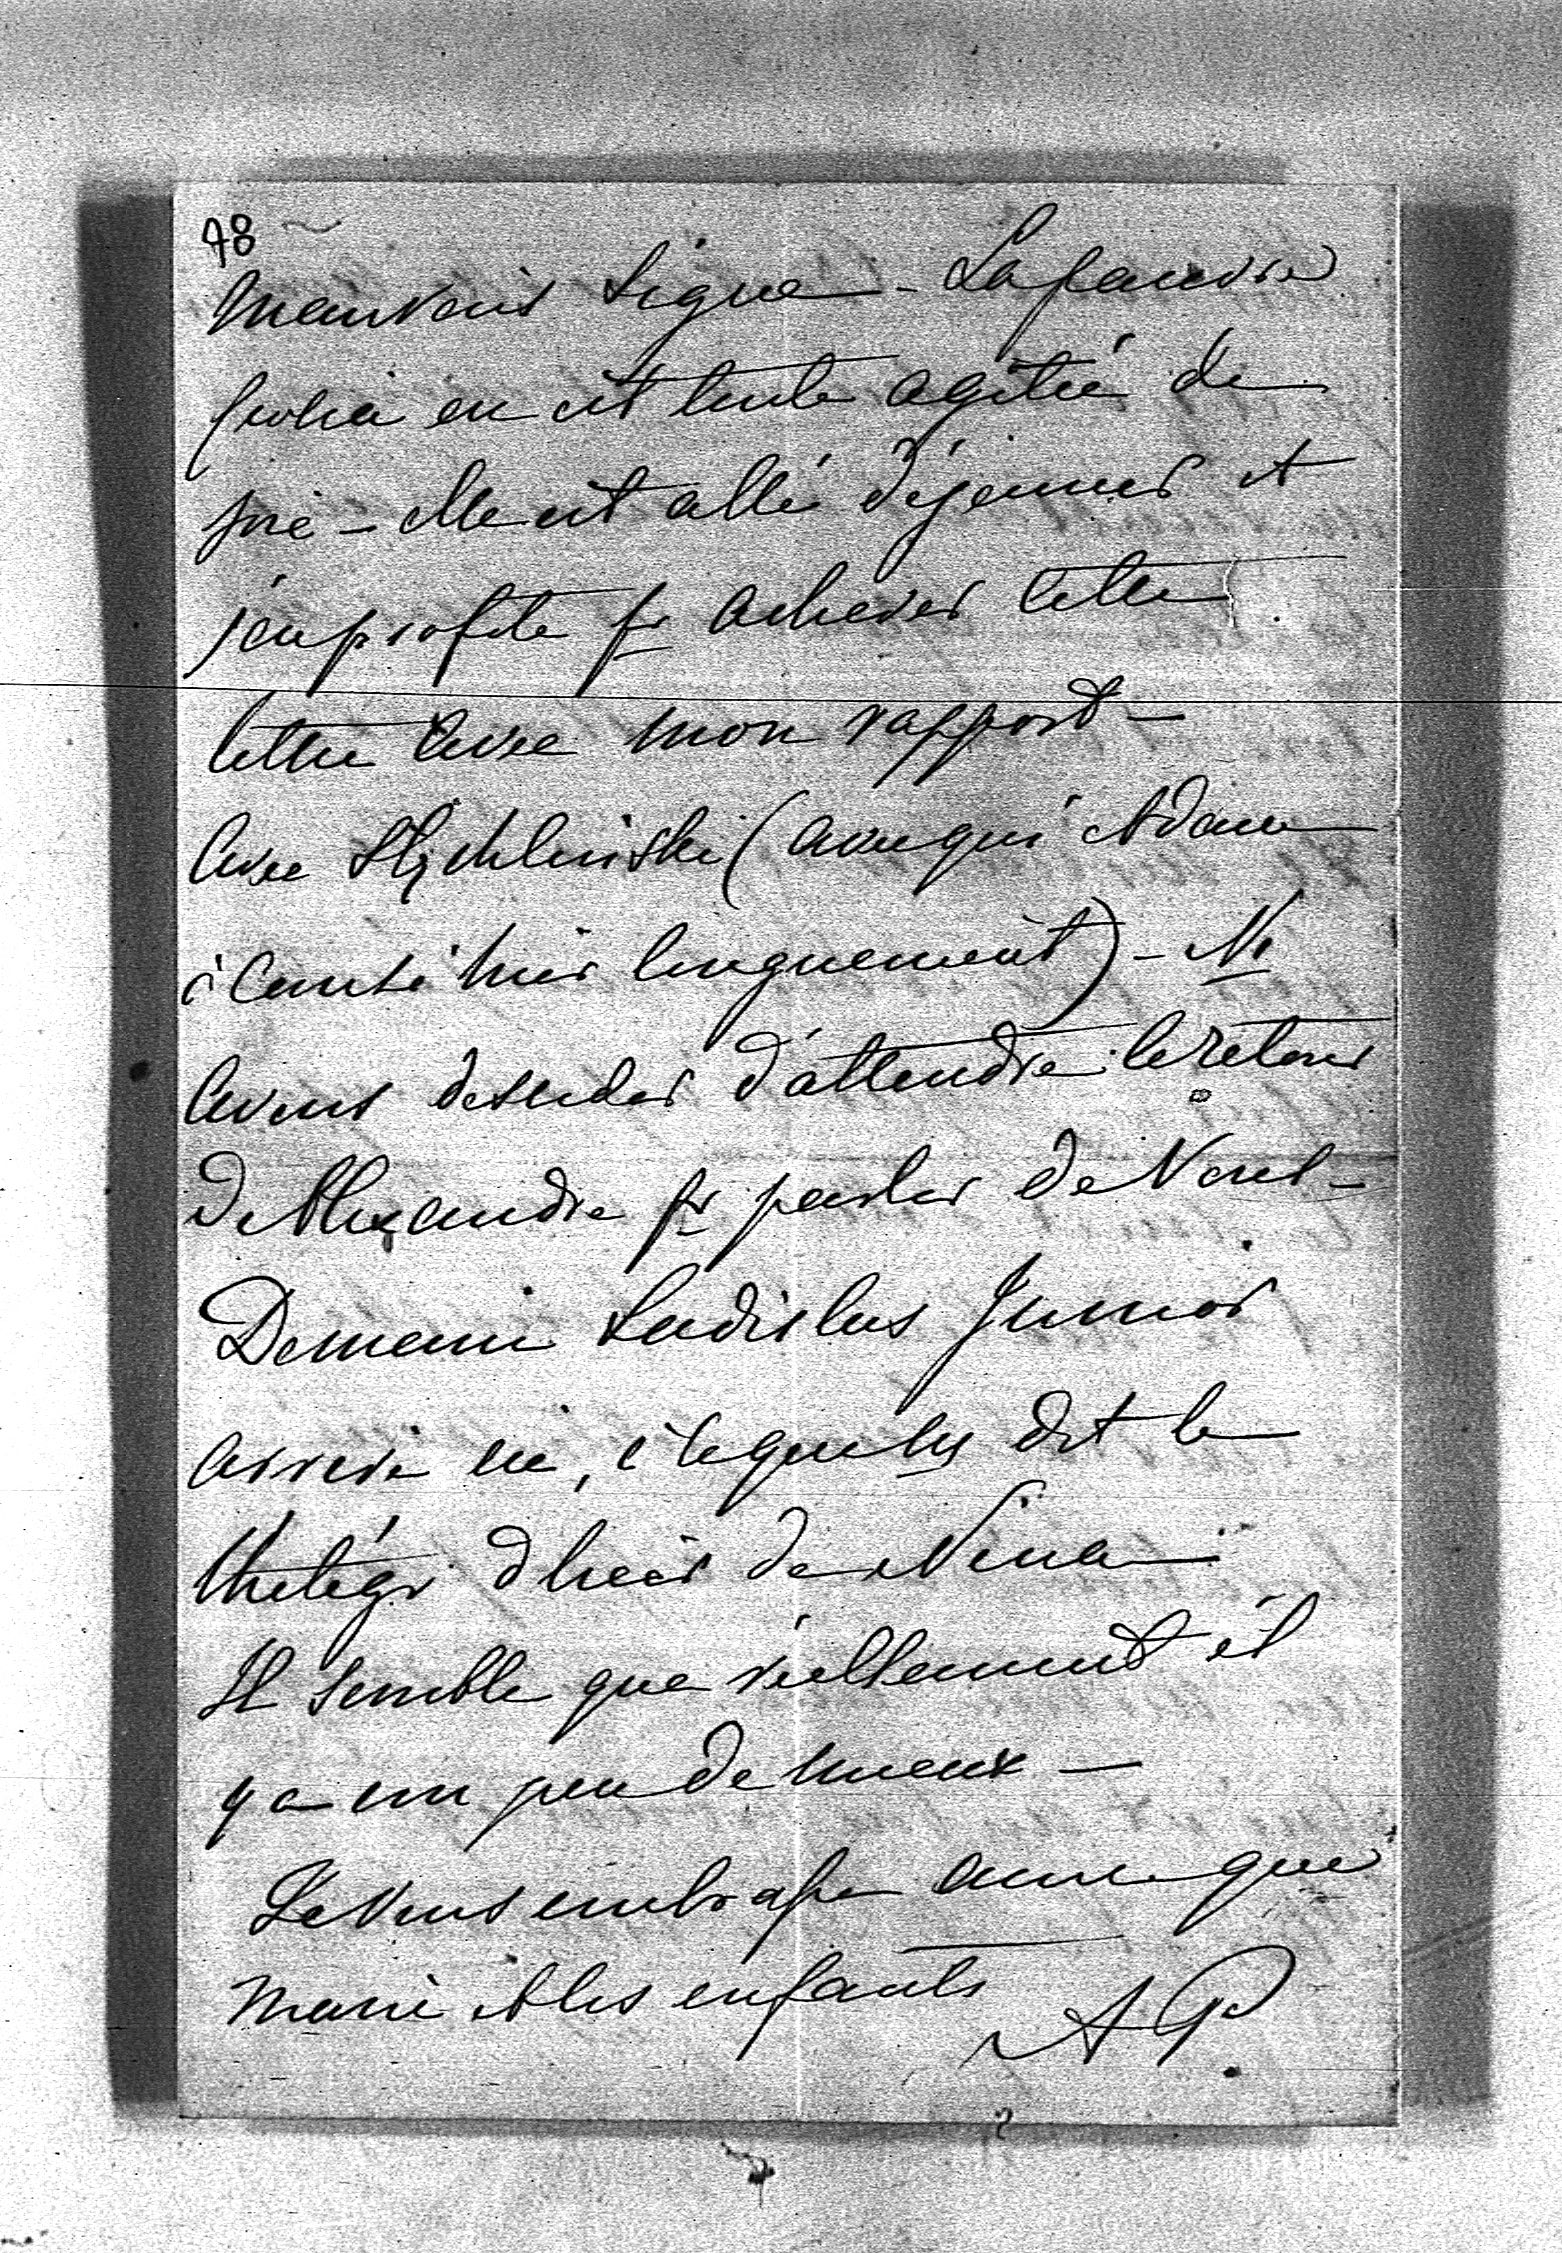 78
mauvais signe - La pauvre
en est toute agitée de
joie - elle est allé déjeuner et
j'en profite pr achever cette
lettre avec mon rapport -
Avec (avec qui Adam
à causé hier longuement) - Ns
avons d'attendre le retour
de Alexandre pr parler de Vous -
Demain Ladislas Junior
arrive ici, c'est ce que dit le
thélégr d'hier de Nina -
Il semble que réellement il
y a un peu de mieux -
Je vous embrasse que
Marie et les enfants
AP.